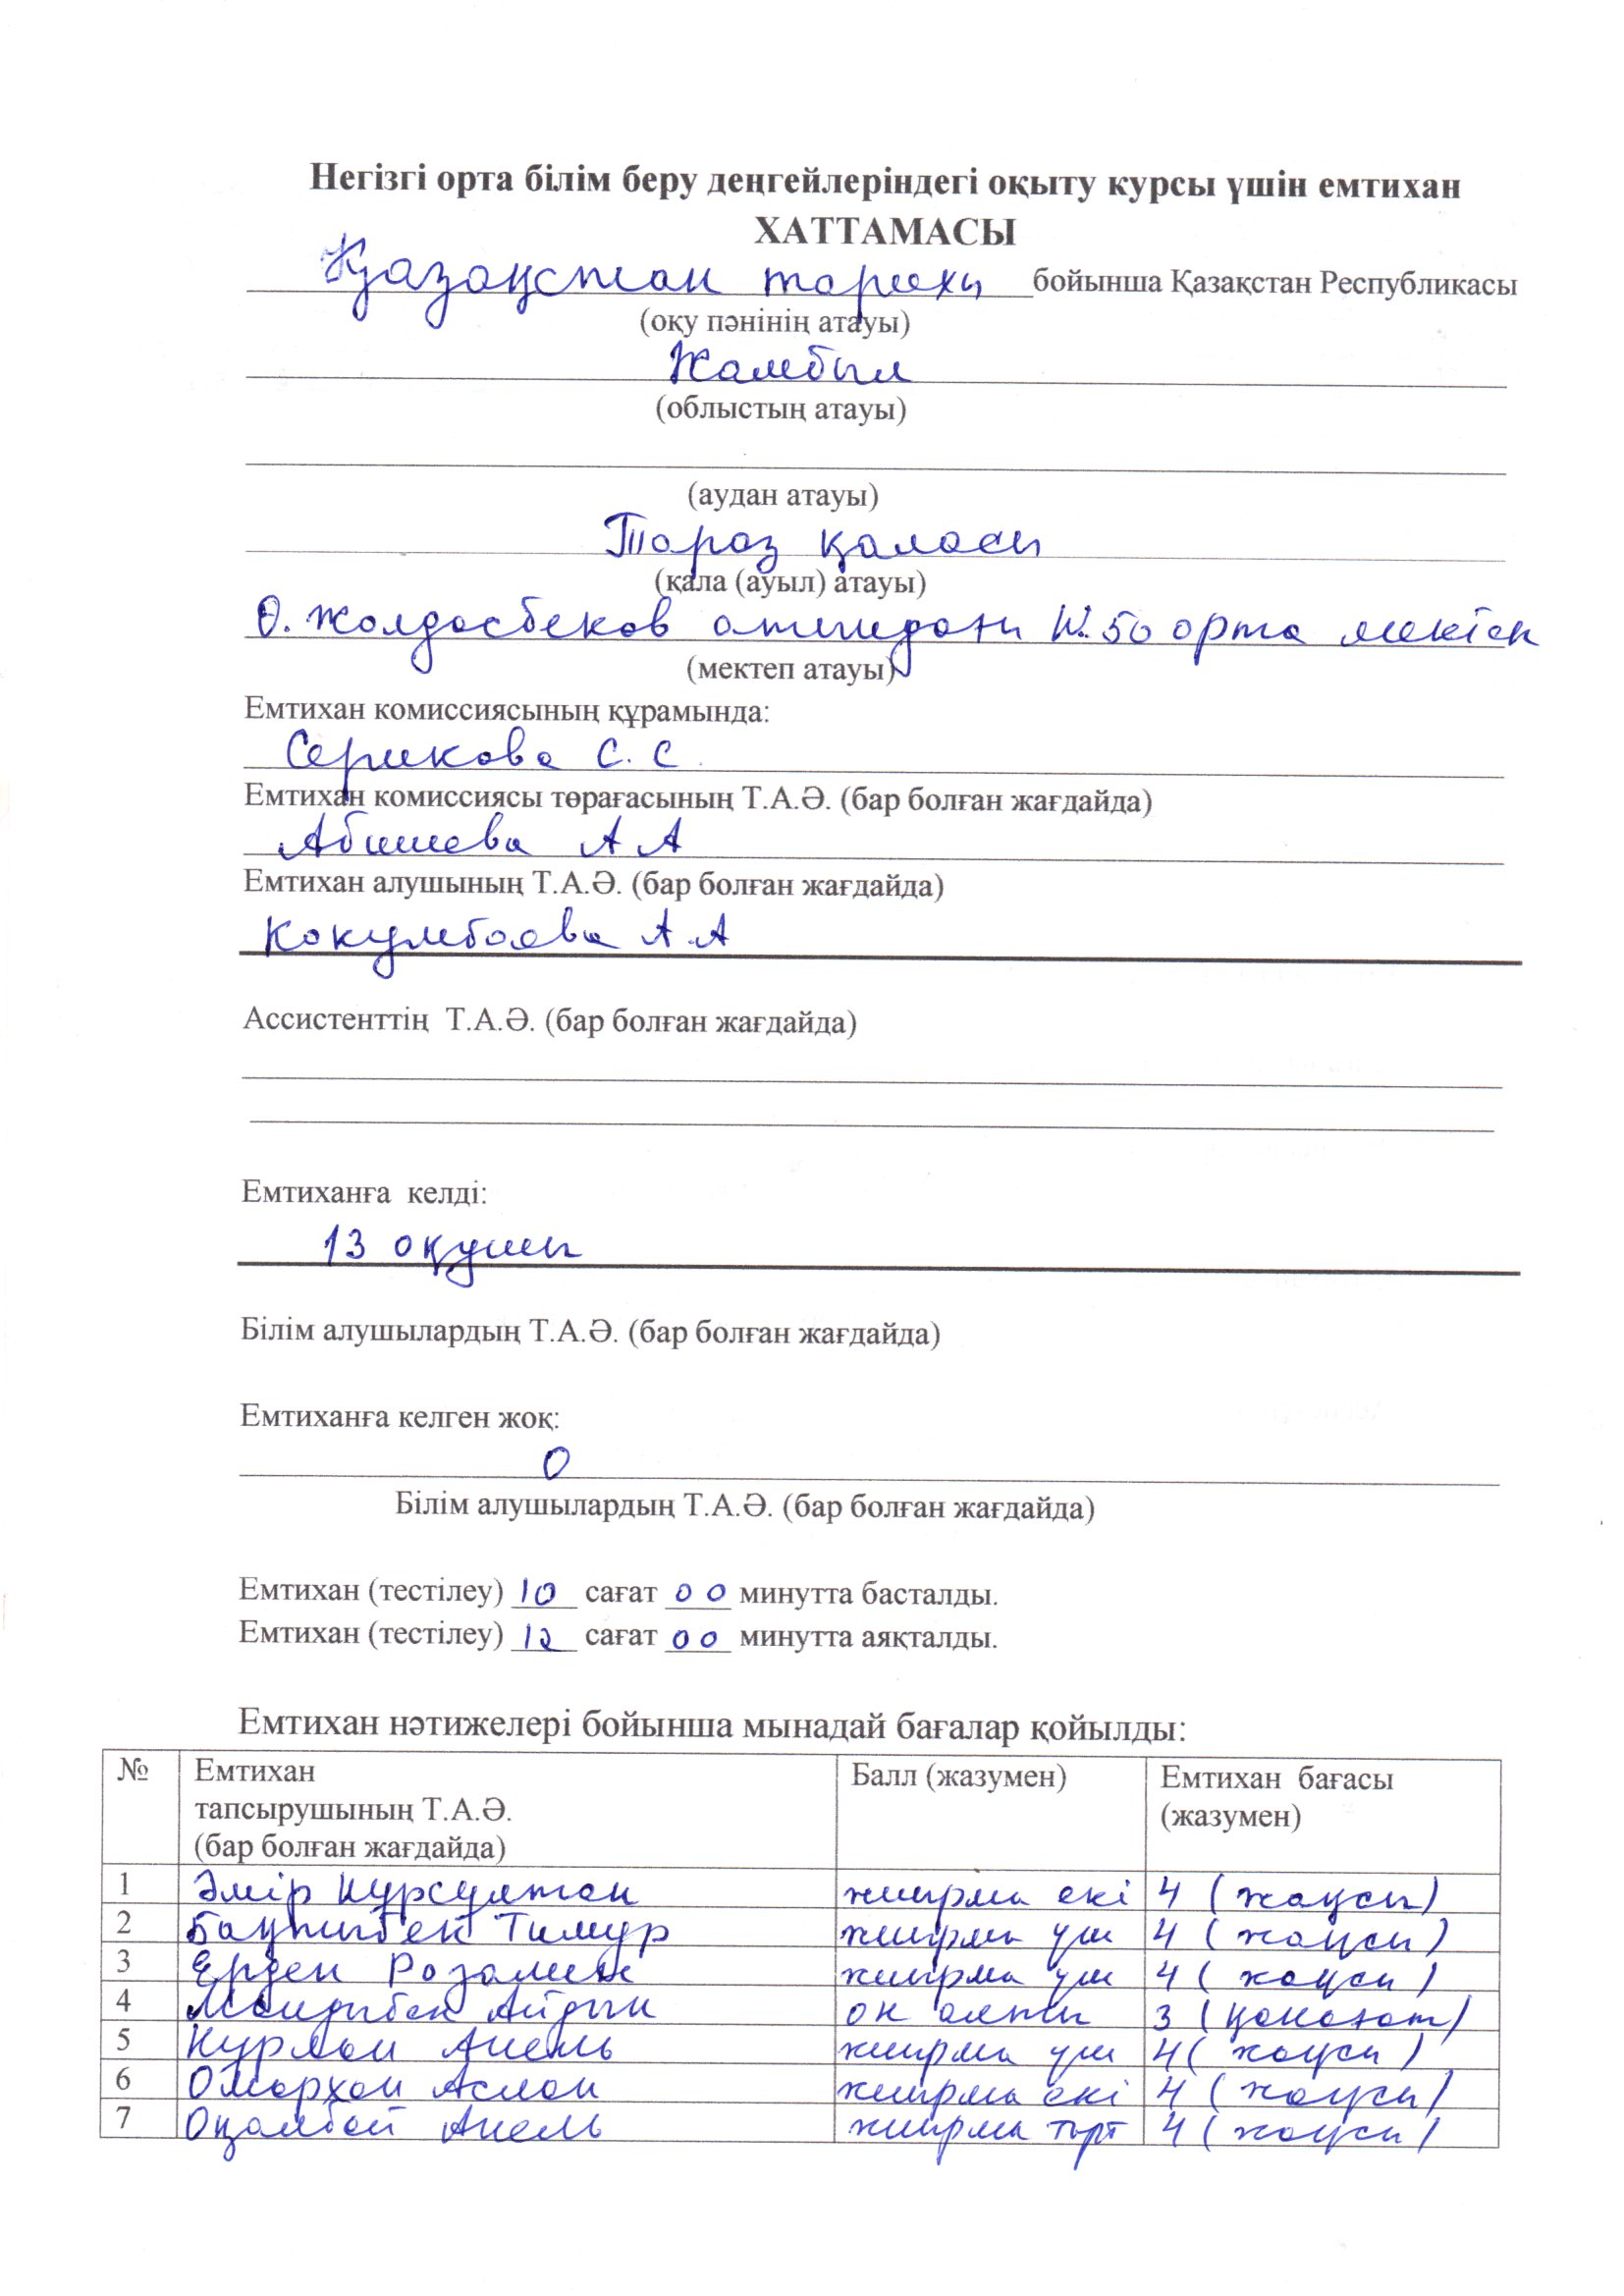 Негізгі орта білім беру деңгейлеріндегі оқыту курсы үшін емтихан
ХАТТАМАСЫ
Қазақстан тарихы бойынша Қазақстан Республикасы
(оқу пәнінің атауы)
Жамбыл
(облыстың атауы)
(аудан атауы)
Тараз қаласы
(қала (ауыл) атауы)
Ө. Жолдасбеков атындағы №50 орта мектеп
(мектеп атауы)
Емтихан комиссиясының құрамында:
Серикова С. С.
Емтихан комиссиясы төрағасының Т.А.Ә. (бар болған жағдайда)
Абишева А А
Емтихан алушының Т.А.Ә. (бар болған жағдайда)
Кокумбаева А А
Ассистенттің Т.А.Ә. (бар болған жағдайда)
Емтиханға келді:
13 оқушы
Білім алушылардың Т.А.Ә. (бар болған жағдайда)
Емтиханға келген жоқ:
0
Білім алушылардың Т.А.Ә. (бар болған жағдайда)
Емтихан (тестілеу) 10 сағат 00 минутта басталды.
Емтихан (тестілеу) 12 сағат 00 минутта аяқталды.
Емтихан нәтижелері бойынша мынадай бағалар қойылды:
№ Емтихан Балл (жазумен) Емтихан бағасы
тапсырушының Т.А.Ә. (жазумен)
(бар болған жағдайда)
1 Әмір Нұрсұлтан жиырма екі 4 (жақсы)
2 Бақтыбек Тимур жиырма үш 4 (жақсы)
3 Ерден Розалин жиырма үш 4 (жақсы)
4 Айдын он алты 3 (қанағат)
5 Нұрлан Анель жиырма үш 4 (жақсы)
6 Омархан Аслан жиырма екі 4 (жақсы)
7 Оңалбай Анель жиырма төрт 4 (жақсы)